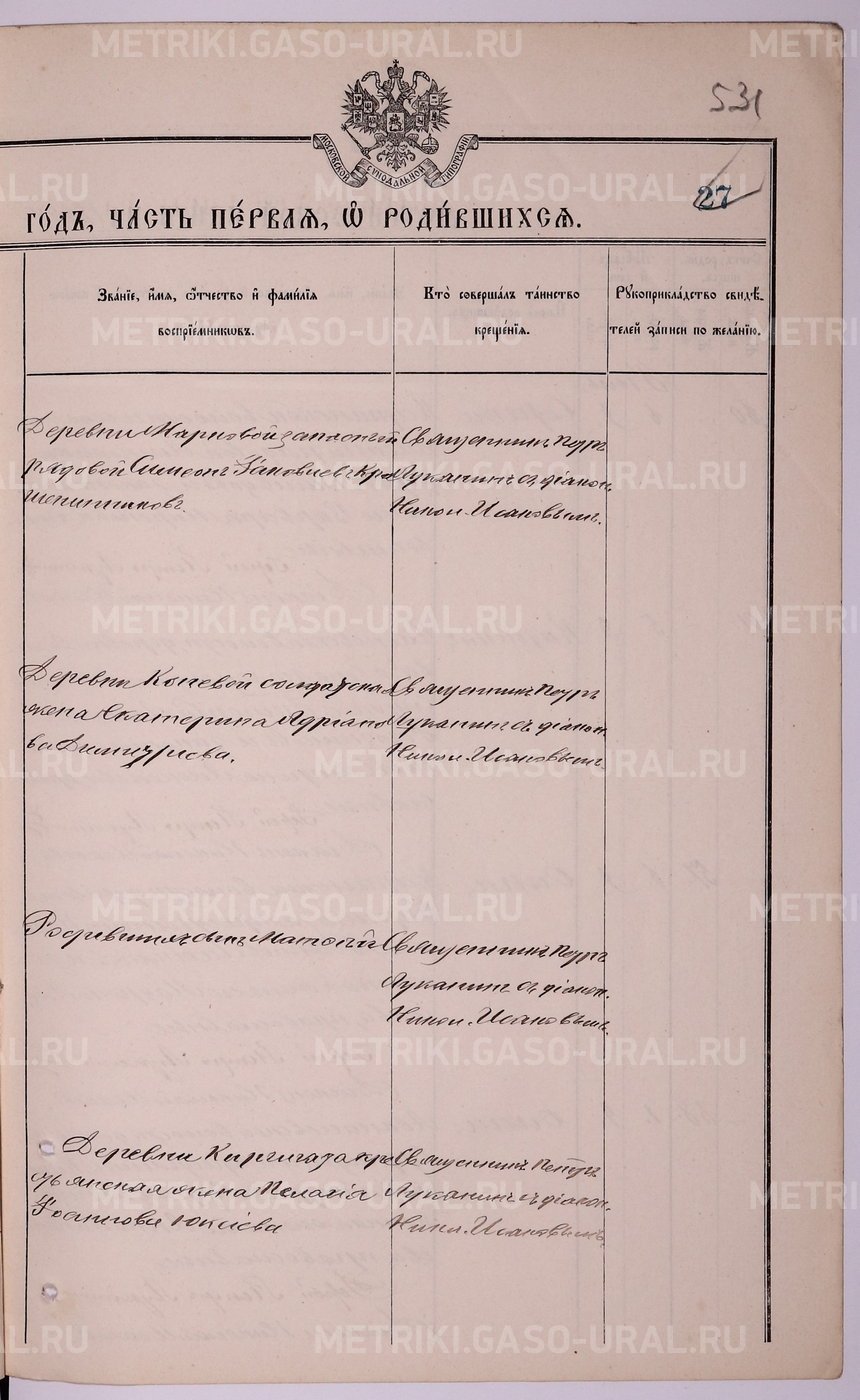 METRIKI.GASO-URAL.RU
531
МОСКОВСКОЙ СѴНОДАЛЬНОЙ ТИПОГРАФІИ
27
ГО́ДЪ, ЧА́СТЬ ПЕ́РВАЯ, Ѡ҆ РОДИ́ВШИХСЯ.
Зва́нїе, и҆́мя, ѻ҆́тчество и҆ фами́лїя
воспрїе́мникѡвъ.
Кто̀ соверша́лъ та́инство
креще́нїя.
Рꙋкоприкла́дство свидѣ́-
телей за́писи по жела́нїю.
Деревни Марковой запасный
рядовой Симеонъ Іаковлевъ Кра
шенинниковъ.
Священникъ Петръ
Луканинъ съ діакон.
Никол. Исаковымъ.
Деревни Коневой солдатская
жена Екатерина Адріано
ва Димитріева.
Священникъ Петръ
Луканинъ съ діакон.
Никол. Исаковымъ.
сынъ
Священникъ Петръ
Луканинъ съ діакон.
Никол. Исаковымъ.
Деревни Киргишата кре
стьянская жена Пелагія
Іоаннова
Священникъ Петръ
Луканинъ съ діакон.
Никл. Исаковымъ.